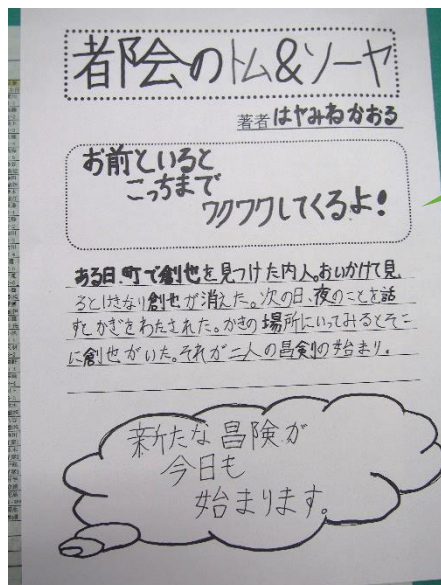 都会のトム&ソーヤ
著者 はやみねかおる
お前といると
こっちまで
ワクワクしてくるよ!
ある日、町で創也を見つけた内人。おいかけて見
るといきなり創也が消えた。次の日、夜のことを話
すとかぎをわたされた。かぎの場所にいってみるとそこ
に創也がいた。それが二人の冒険の始まり。
新たな冒険が
今日も
始まります。